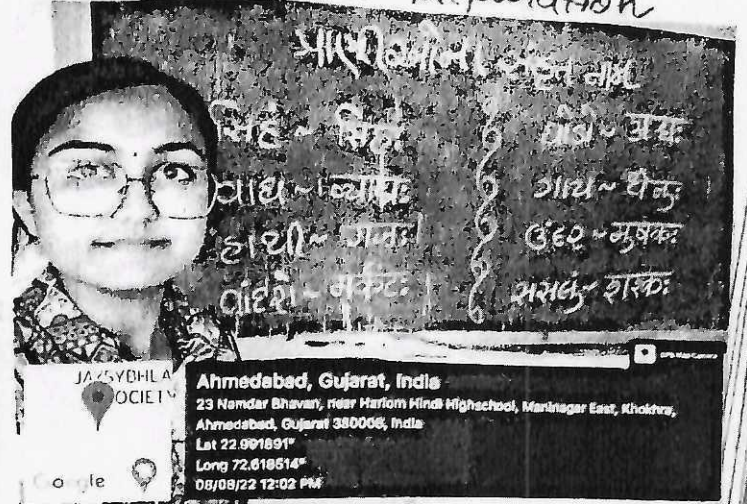 પ્રાણીઓના સંસ્કૃત નામ
સિંહ ~ सिंहः
વાઘ ~ व्याघ्रः
હાથી ~ गजः
વાંદરો ~ मर्कटः
ઘોડો ~ अश्वः
ગાય ~ धेनुः
ઉંદર ~ मुषकः
સસલું ~ शशकः
GPS Map Camera
Ahmedabad, Gujarat, India
23 Namdar Bhavan, near Hariom Hindi Highschool, Maninagar East, Khokhra,
Ahmedabad, Gujarat 380008, India
Lat 22.991891°
Long 72.618514°
08/08/22 12:02 PM
OCIETY
Google